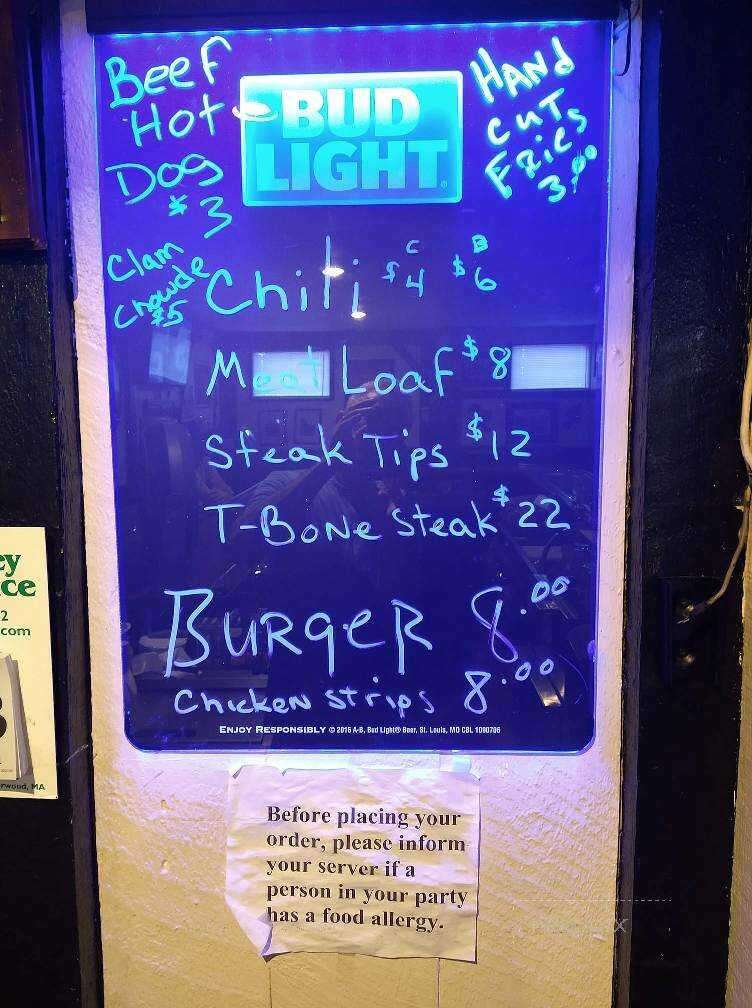 Beef
Hot
Dog
$3
BUD
LIGHT
HAND
CUT
FRIES
3.00
Clam
Chowde
$5
C B
Chili $4 $6
Meat Loaf $8
Steak Tips $12
T-BoNe Steak $22
BURgeR 8.00
ChickeN strips 8.00
ENJOY RESPONSIBLY © 2016 A-B, Bud Light® Beer, St. Louis, MO CBL 1090706
Before placing your
order, please inform
your server if a
person in your party
has a food allergy.
ey
ce
2
com
rwood, MA